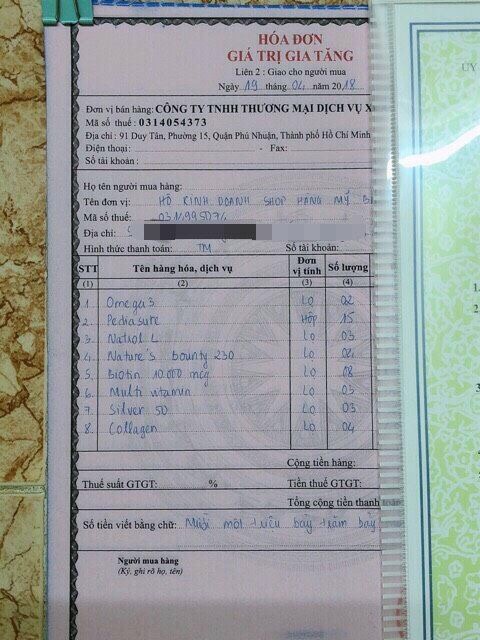 HÓA ĐƠN
GIÁ TRỊ GIA TĂNG
Liên 2 : Giao cho người mua
Ngày 19 tháng 04 năm 2018
Đơn vị bán hàng: CÔNG TY TNHH THƯƠNG MẠI DỊCH VỤ X
Mã số thuế : 0314054373
Địa chỉ : 91 Duy Tân, Phường 15, Quận Phú Nhuận, Thành phố Hồ Chí Minh
Điện thoại: - Fax:
Số tài khoản:
Họ tên người mua hàng:
Tên đơn vị: HỘ KINH DOANH SHOP HÀNG MỸ
Mã số thuế:
Địa chỉ:
Hình thức thanh toán: TM Số tài khoản:
STT Tên hàng hóa, dịch vụ Đơn vị tính Số lượng
(1) (2) (3) (4)
1. Omega 3 Lọ 02
2. Pediasure Hộp 15
3. Natrol L Lọ 03
4. Nature's bounty 230 Lọ
5. Biotin 10.000 mcg Lọ 08
6. Multi vitamin Lọ 03
7. Silver 50 Lọ 03
8. Collagen Lọ 04
Cộng tiền hàng:
Thuế suất GTGT: % Tiền thuế GTGT:
Tổng cộng tiền thanh
Số tiền viết bằng chữ: Mười một triệu bảy trăm bảy
Người mua hàng
(Ký, ghi rõ họ, tên)
ỦY
1.
2.
3.
4.